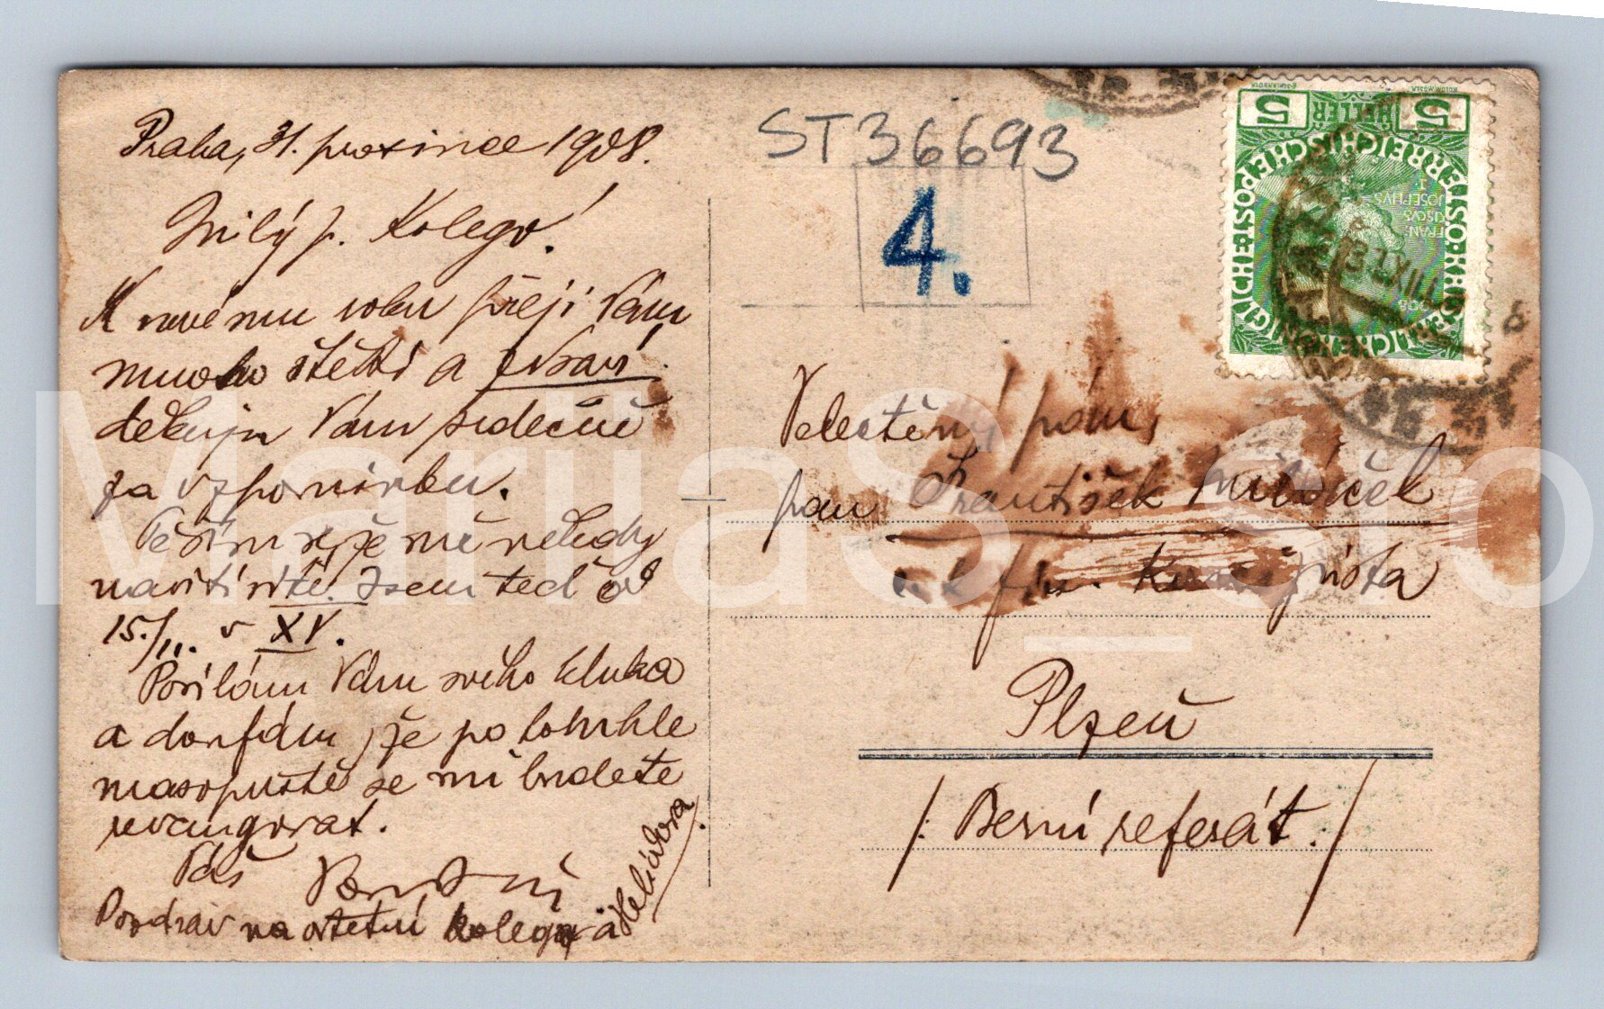 Praha, 31. prosince 1908.
Milý p. Kolego!
K novému roku přeji Vám
mnoho štěstí a zdraví
děkuju Vám srdečně
za vzpomínku.
Těším se, že mě někdy
navštívíte. Jsem teď od
15./11. v XV.
Posílám Vám svého kluka
a doufám, že po tomhle
masopustě se mi budete
revangovat.
Váš
Pozdrav na ostatní kolegy a Heliodora.
ST36693
4.
5 HELLER 5
KAISERLICHE KÖNIGLICHE ÖSTERREICHISCHE POST
FRAN:
CISCVS
JOSEPHVS
I
1908
Velectěný pán,
pan František
Plzeň
/: Berní referát. :/
MarijaS_Sro